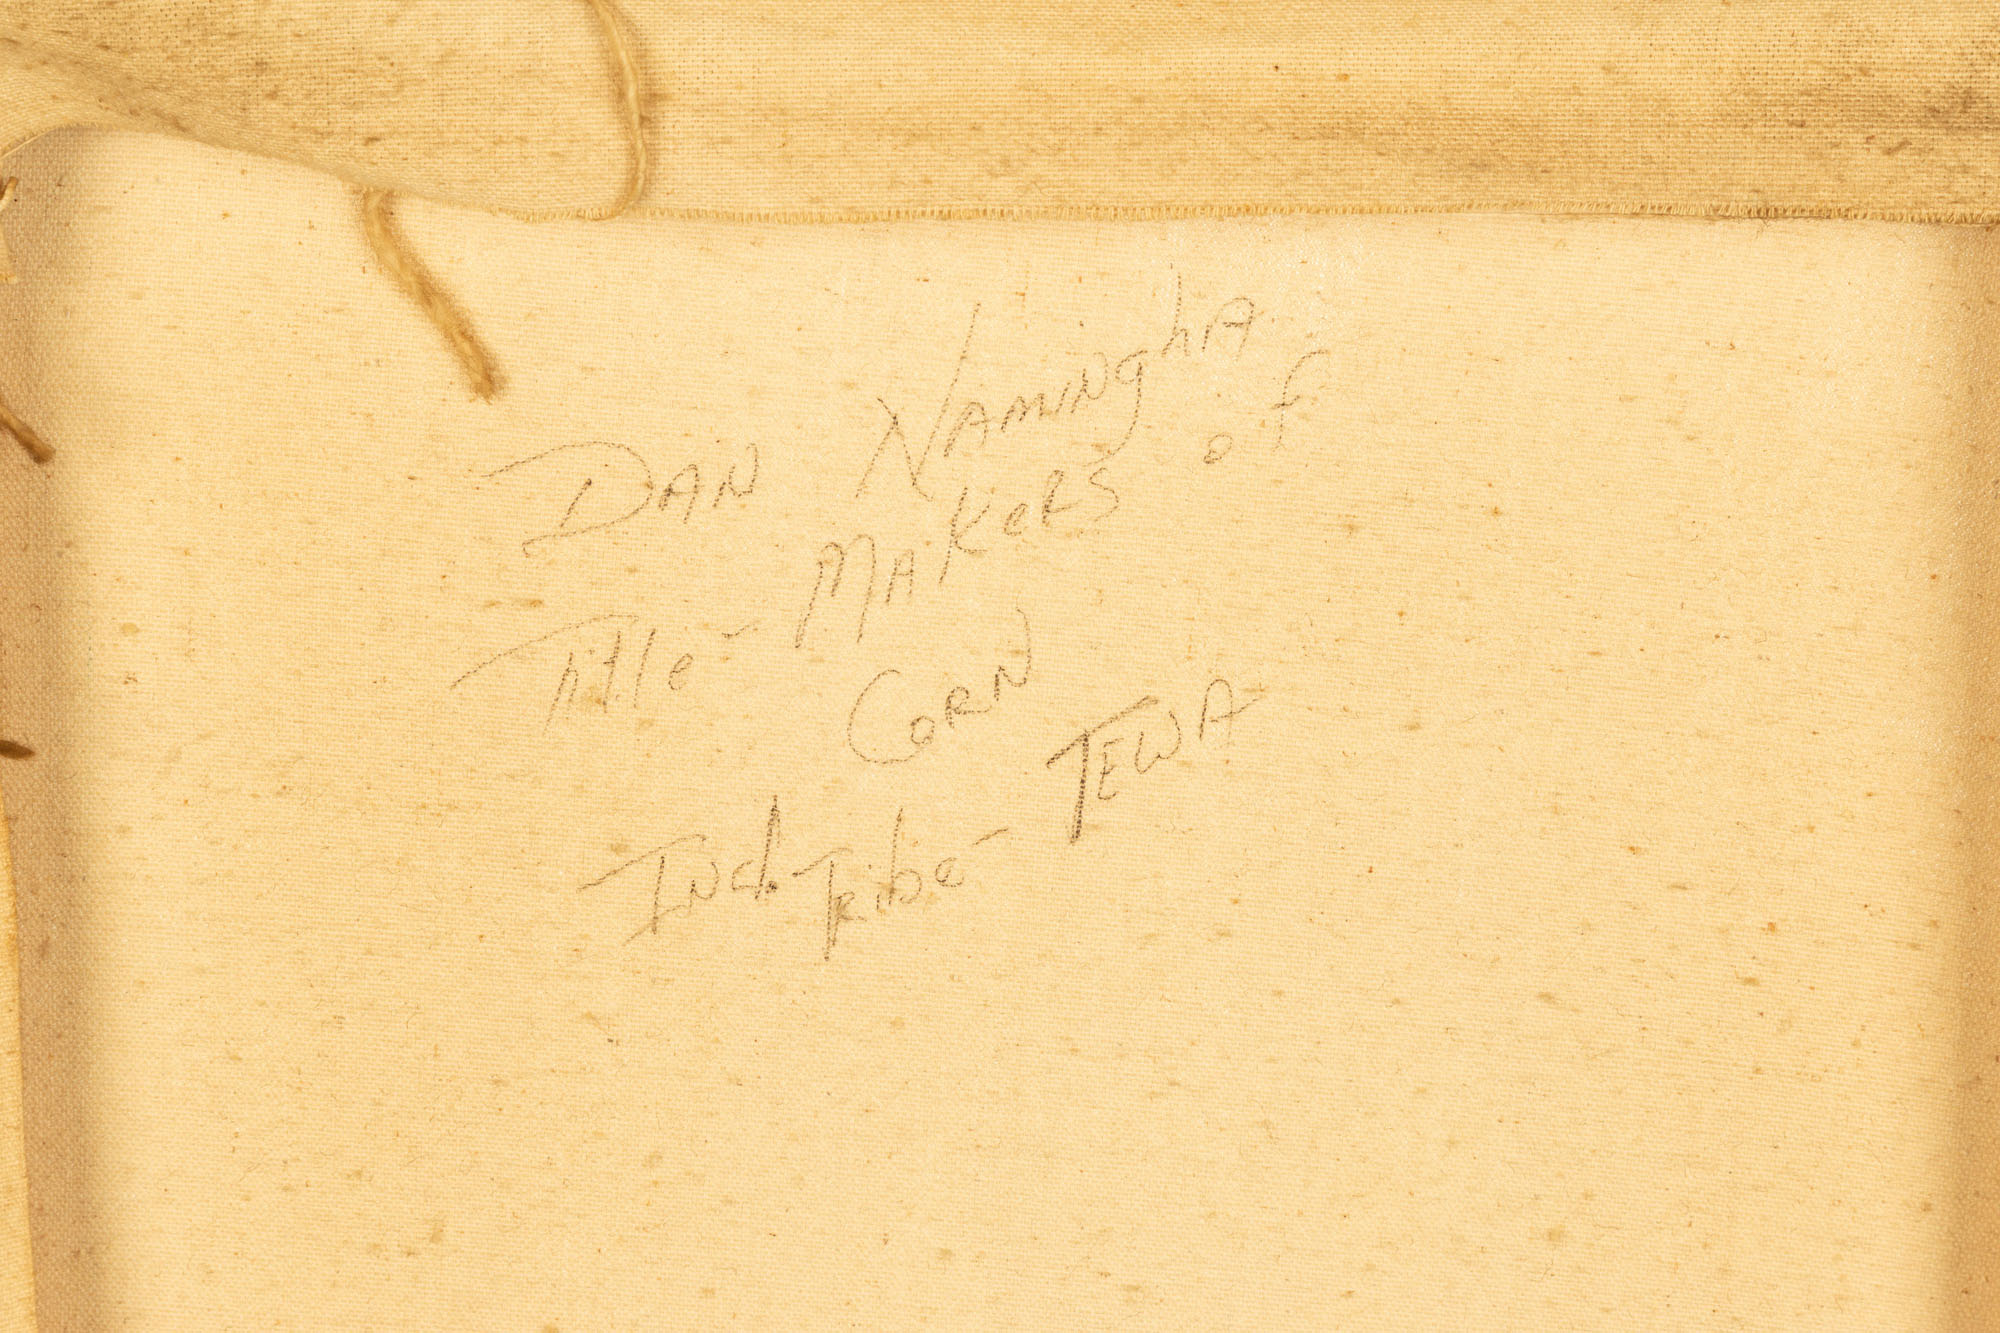 DAN NAMINghA
Title - MAKeRS of
CORN
INd. TRibe - TEWA